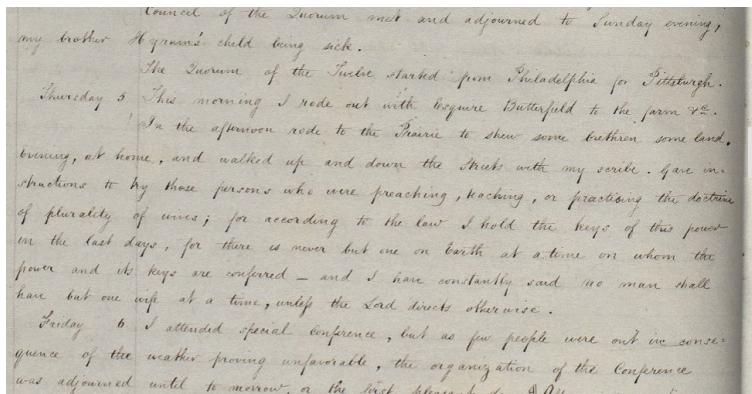 Council of the Quorum met and adjourned to Sunday evening,
my brother Hyrum's child being sick.
The Quorum of the Twelve started from Philadelphia for Pittsburgh.
Thursday 5 This morning I rode out with Esquire Butterfield to the farm &c.
In the afternoon rode to the Prairie to shew some brethren some land.
Evening, at home, and walked up and down the Streets with my scribe. Gave in-
structions to try those persons who were preaching, teaching, or practicing the doctrine
of plurality of wives; for according to the law I hold the keys of this power
in the last days, for there is never but one on Earth at a time on whom the
power and its keys are conferred — and I have constantly said no man shall
have but one wife at a time, unless the Lord directs otherwise.
Friday 6 I attended special conference, but as few people were out in conse-
quence of the weather proving unfavorable, the organization of the Conference
was adjourned until to morrow, or the first pleasant day